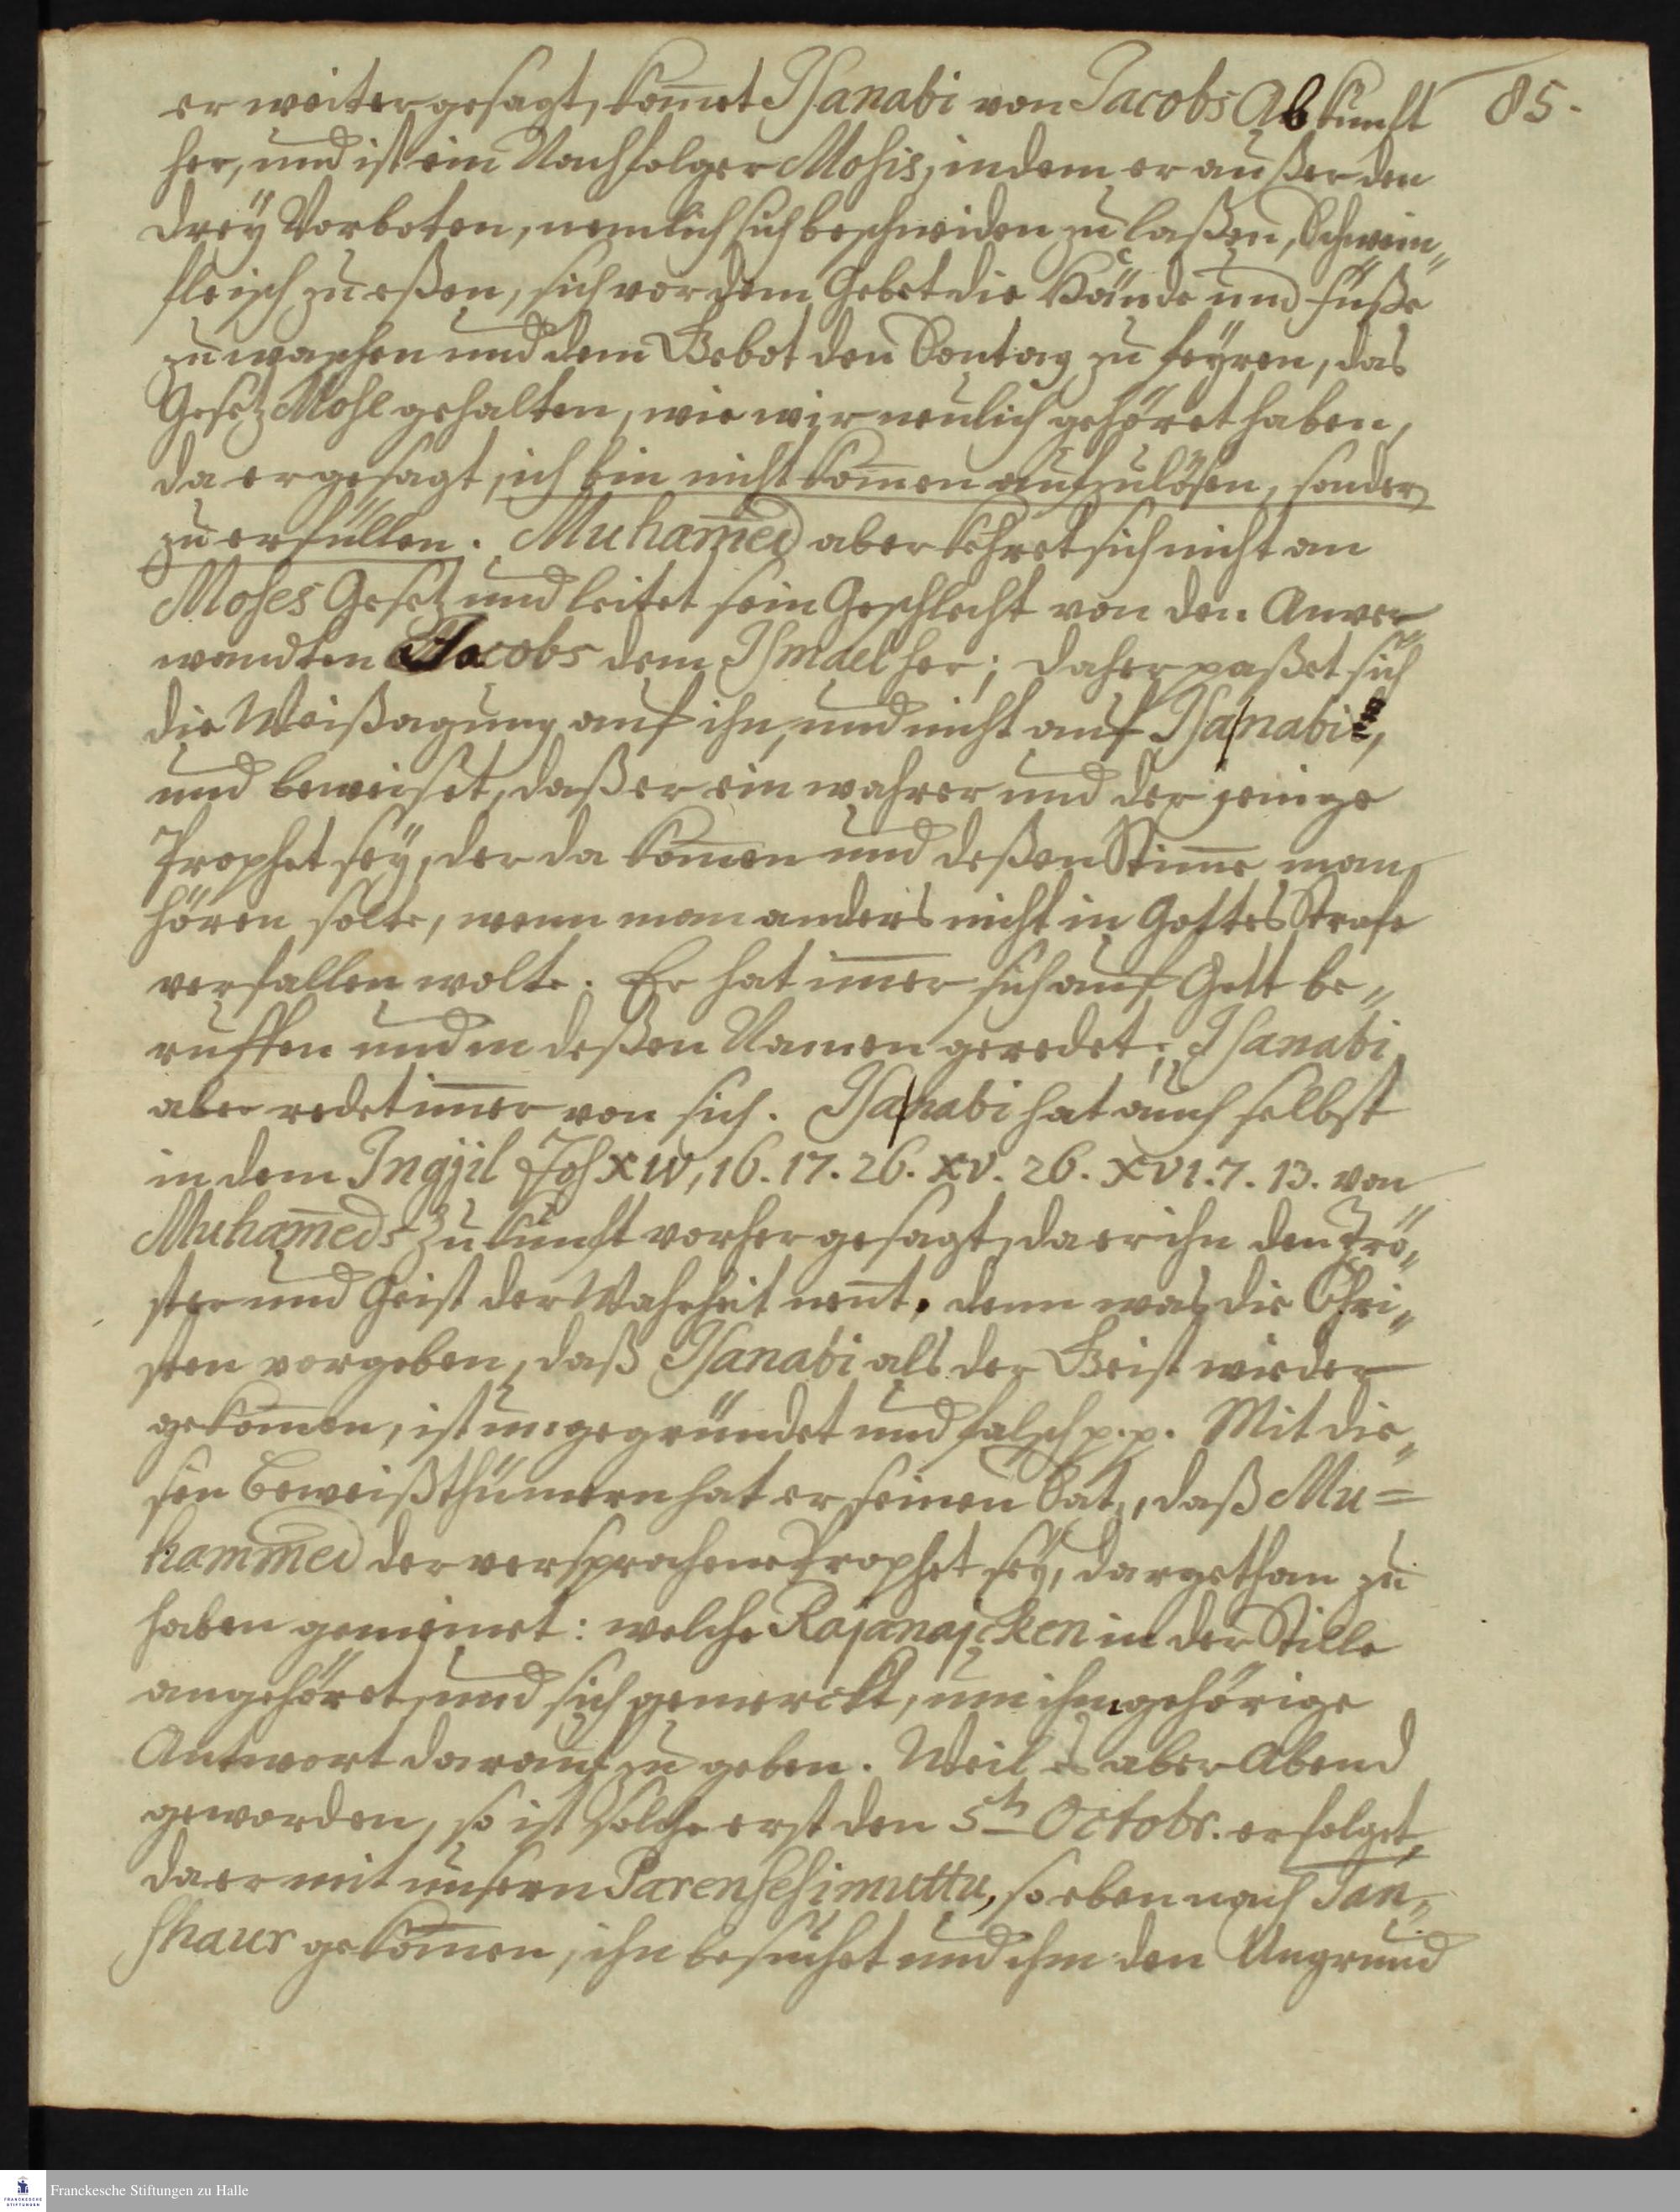 er weiter gesagt, kom̄et Isanabi von Jacobs Abkunft 85.
her, und ist ein Nachfolger Mosis, indem er außer den
drey Verboten, nemlich sich beschneiden zu laßen, Schwein„
fleisch zu eßen, sich vor dem Gebet die Hände und Füße
zu waschen und dem Gebot den Sontag zu feyren, das
Gesetz Mose gehalten, wie wir neulich gehöret haben,
da er gesagt, ich bin nicht kom̄en aufzulösen, sonder
zu erfüllen. Muham̄ed aber kehret sich nicht an
Moses Gesetz und leitet sein Geschlecht von den Anver„
wandten Jacobs dem Ismael her; daher paßet sich
die Weißagung auf ihn, und nicht auf Isanabi,
und beweiset, daß er ein wahrer und der jenige
Prophet sey, der da kom̄en und deßen Stim̄e man
hören solte, wenn man anders nicht in Gottes Strafe
verfallen wolte. Er hat im̄er sich auf Gott be„
ruffen und in deßen Namen geredet; Isanabi
aber redet im̄er von sich. Isanabi hat auch selbst
in dem Ingjil Joh XIV, 16. 17. 26. XV. 26. XVI. 7. 13. von
Muham̄eds Zukunft vorher gesagt, da er ihn den Trö„
ster und Geist der Wahrheit nen̄t. denn was die Chri„
sten vorgeben, daß Isanabi als der Geist wieder
gekom̄en, ist ungegründet und falsch p. p. Mit die„
sen Beweißthümern hat er seinen Satz, daß Mu=
hammed der versprochene Prophet sey, dargethan zu
haben gemeinet: welche Rajanajcken in der Stille
angehöret, und sich gemerckt, um ihm gehörige
Antwort darauf zu geben. Weil es aber Abend
geworden, so ist solche erst den 5ten Octobr. erfolget,
da er mit unsern Parenseshimuttu, so eben nach Tan„
shaur gekom̄en, ihn besuchet und ihm den Ungrund
Franckesche Stiftungen zu Halle
FRANCKESCHE
STIFTUNGEN